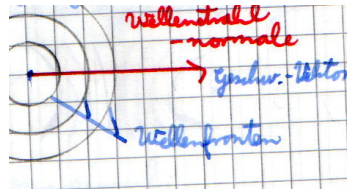 Wellenstrahl
-normale
Geschw.-Vektor
Wellenfronten